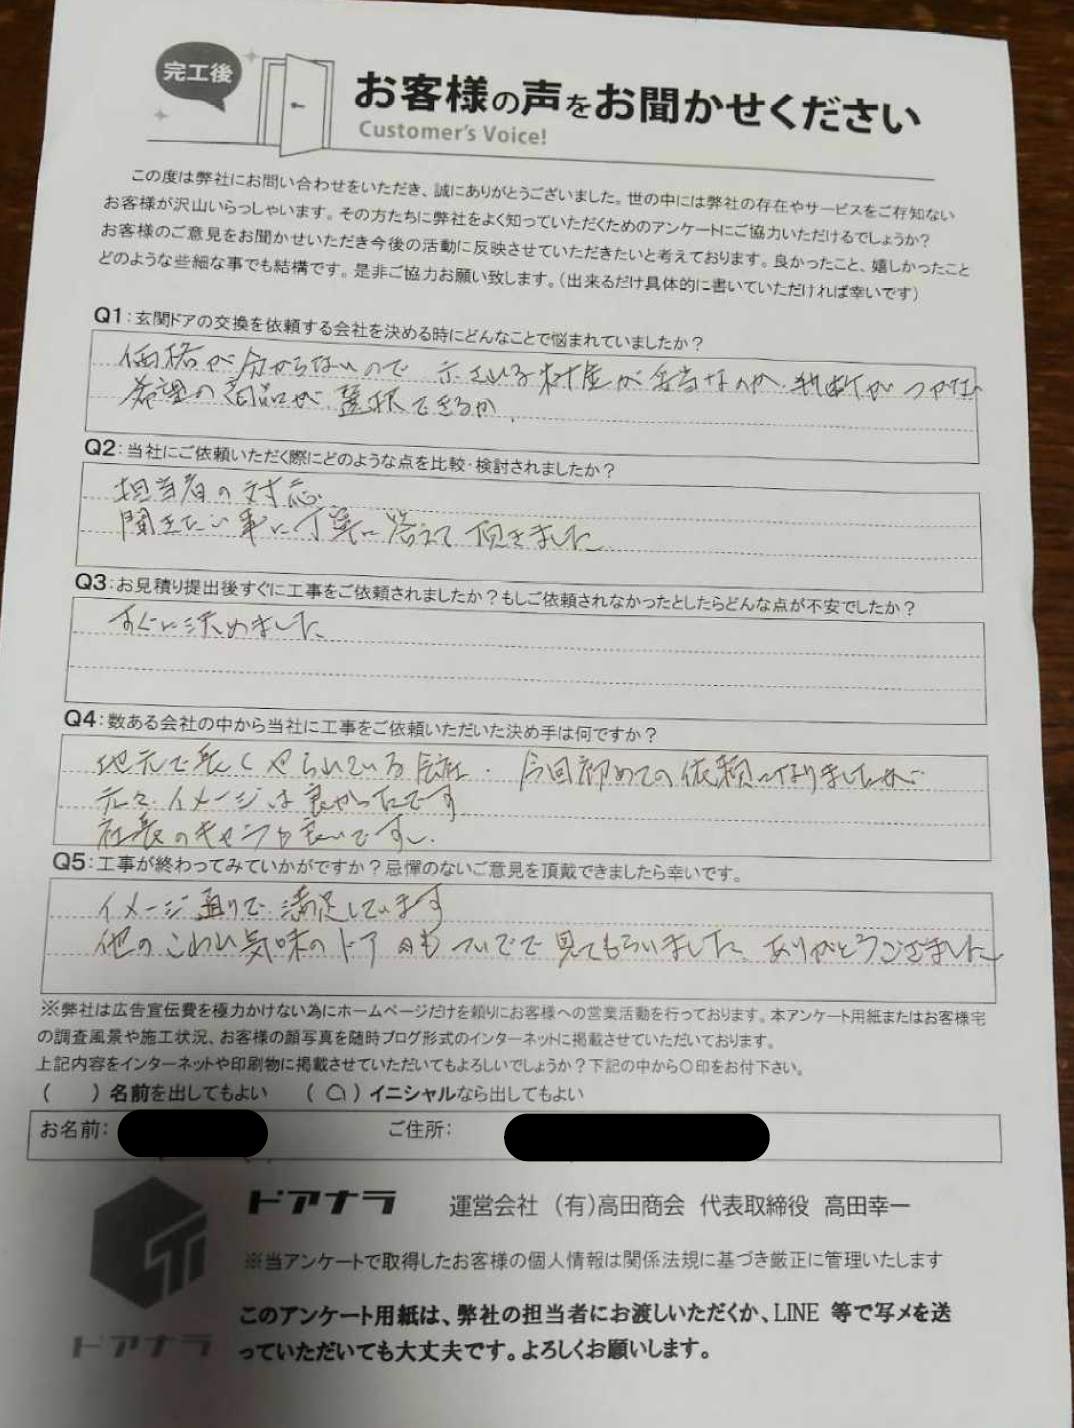 完工後
お客様の声をお聞かせください
Customer's Voice!
この度は弊社にお問い合わせをいただき、誠にありがとうございました。世の中には弊社の存在やサービスをご存知ない
お客様が沢山いらっしゃいます。その方たちに弊社をよく知っていただくためのアンケートにご協力いただけるでしょうか?
お客様のご意見をお聞かせいただき今後の活動に反映させていただきたいと考えております。良かったこと、嬉しかったこと
どのような些細な事でも結構です。是非ご協力お願い致します。(出来るだけ具体的に書いていただければ幸いです)
Q1:玄関ドアの交換を依頼する会社を決める時にどんなことで悩まれていましたか?
価格が分からないので 示される が妥当なのか、判断がつかない
希望の商品が、選択できるか、
Q2:当社にご依頼いただく際にどのような点を比較・検討されましたか?
担当者の対応
聞きたい事に丁寧に答えて頂きました
Q3:お見積り提出後すぐに工事をご依頼されましたか?もしご依頼されなかったとしたらどんな点が不安でしたか?
すぐに決めました
Q4:数ある会社の中から当社に工事をご依頼いただいた決め手は何ですか?
地元で長くやられている会社、今回初めての依頼になりましたが
元々イメージは良かったです
社長のキャラも良いですし、
Q5:工事が終わってみていかがですか?忌憚のないご意見を頂戴できましたら幸いです。
イメージ通りで満足しています
他のこわれ気味のドア もついでで見てもらいました、ありがとうございました
※弊社は広告宣伝費を極力かけない為にホームページだけを頼りにお客様への営業活動を行っております。本アンケート用紙またはお客様宅
の調査風景や施工状況、お客様の顔写真を随時ブログ形式のインターネットに掲載させていただいております。
上記内容をインターネットや印刷物に掲載させていただいてもよろしいでしょうか?下記の中から〇印をお付下さい。
( )名前を出してもよい (○)イニシャルなら出してもよい
お名前: ご住所:
ドアナラ 運営会社 (有)高田商会 代表取締役 高田幸一
※当アンケートで取得したお客様の個人情報は関係法規に基づき厳正に管理いたします
ドアナラ
このアンケート用紙は、弊社の担当者にお渡しいただくか、LINE 等で写メを送
っていただいても大丈夫です。よろしくお願いします。